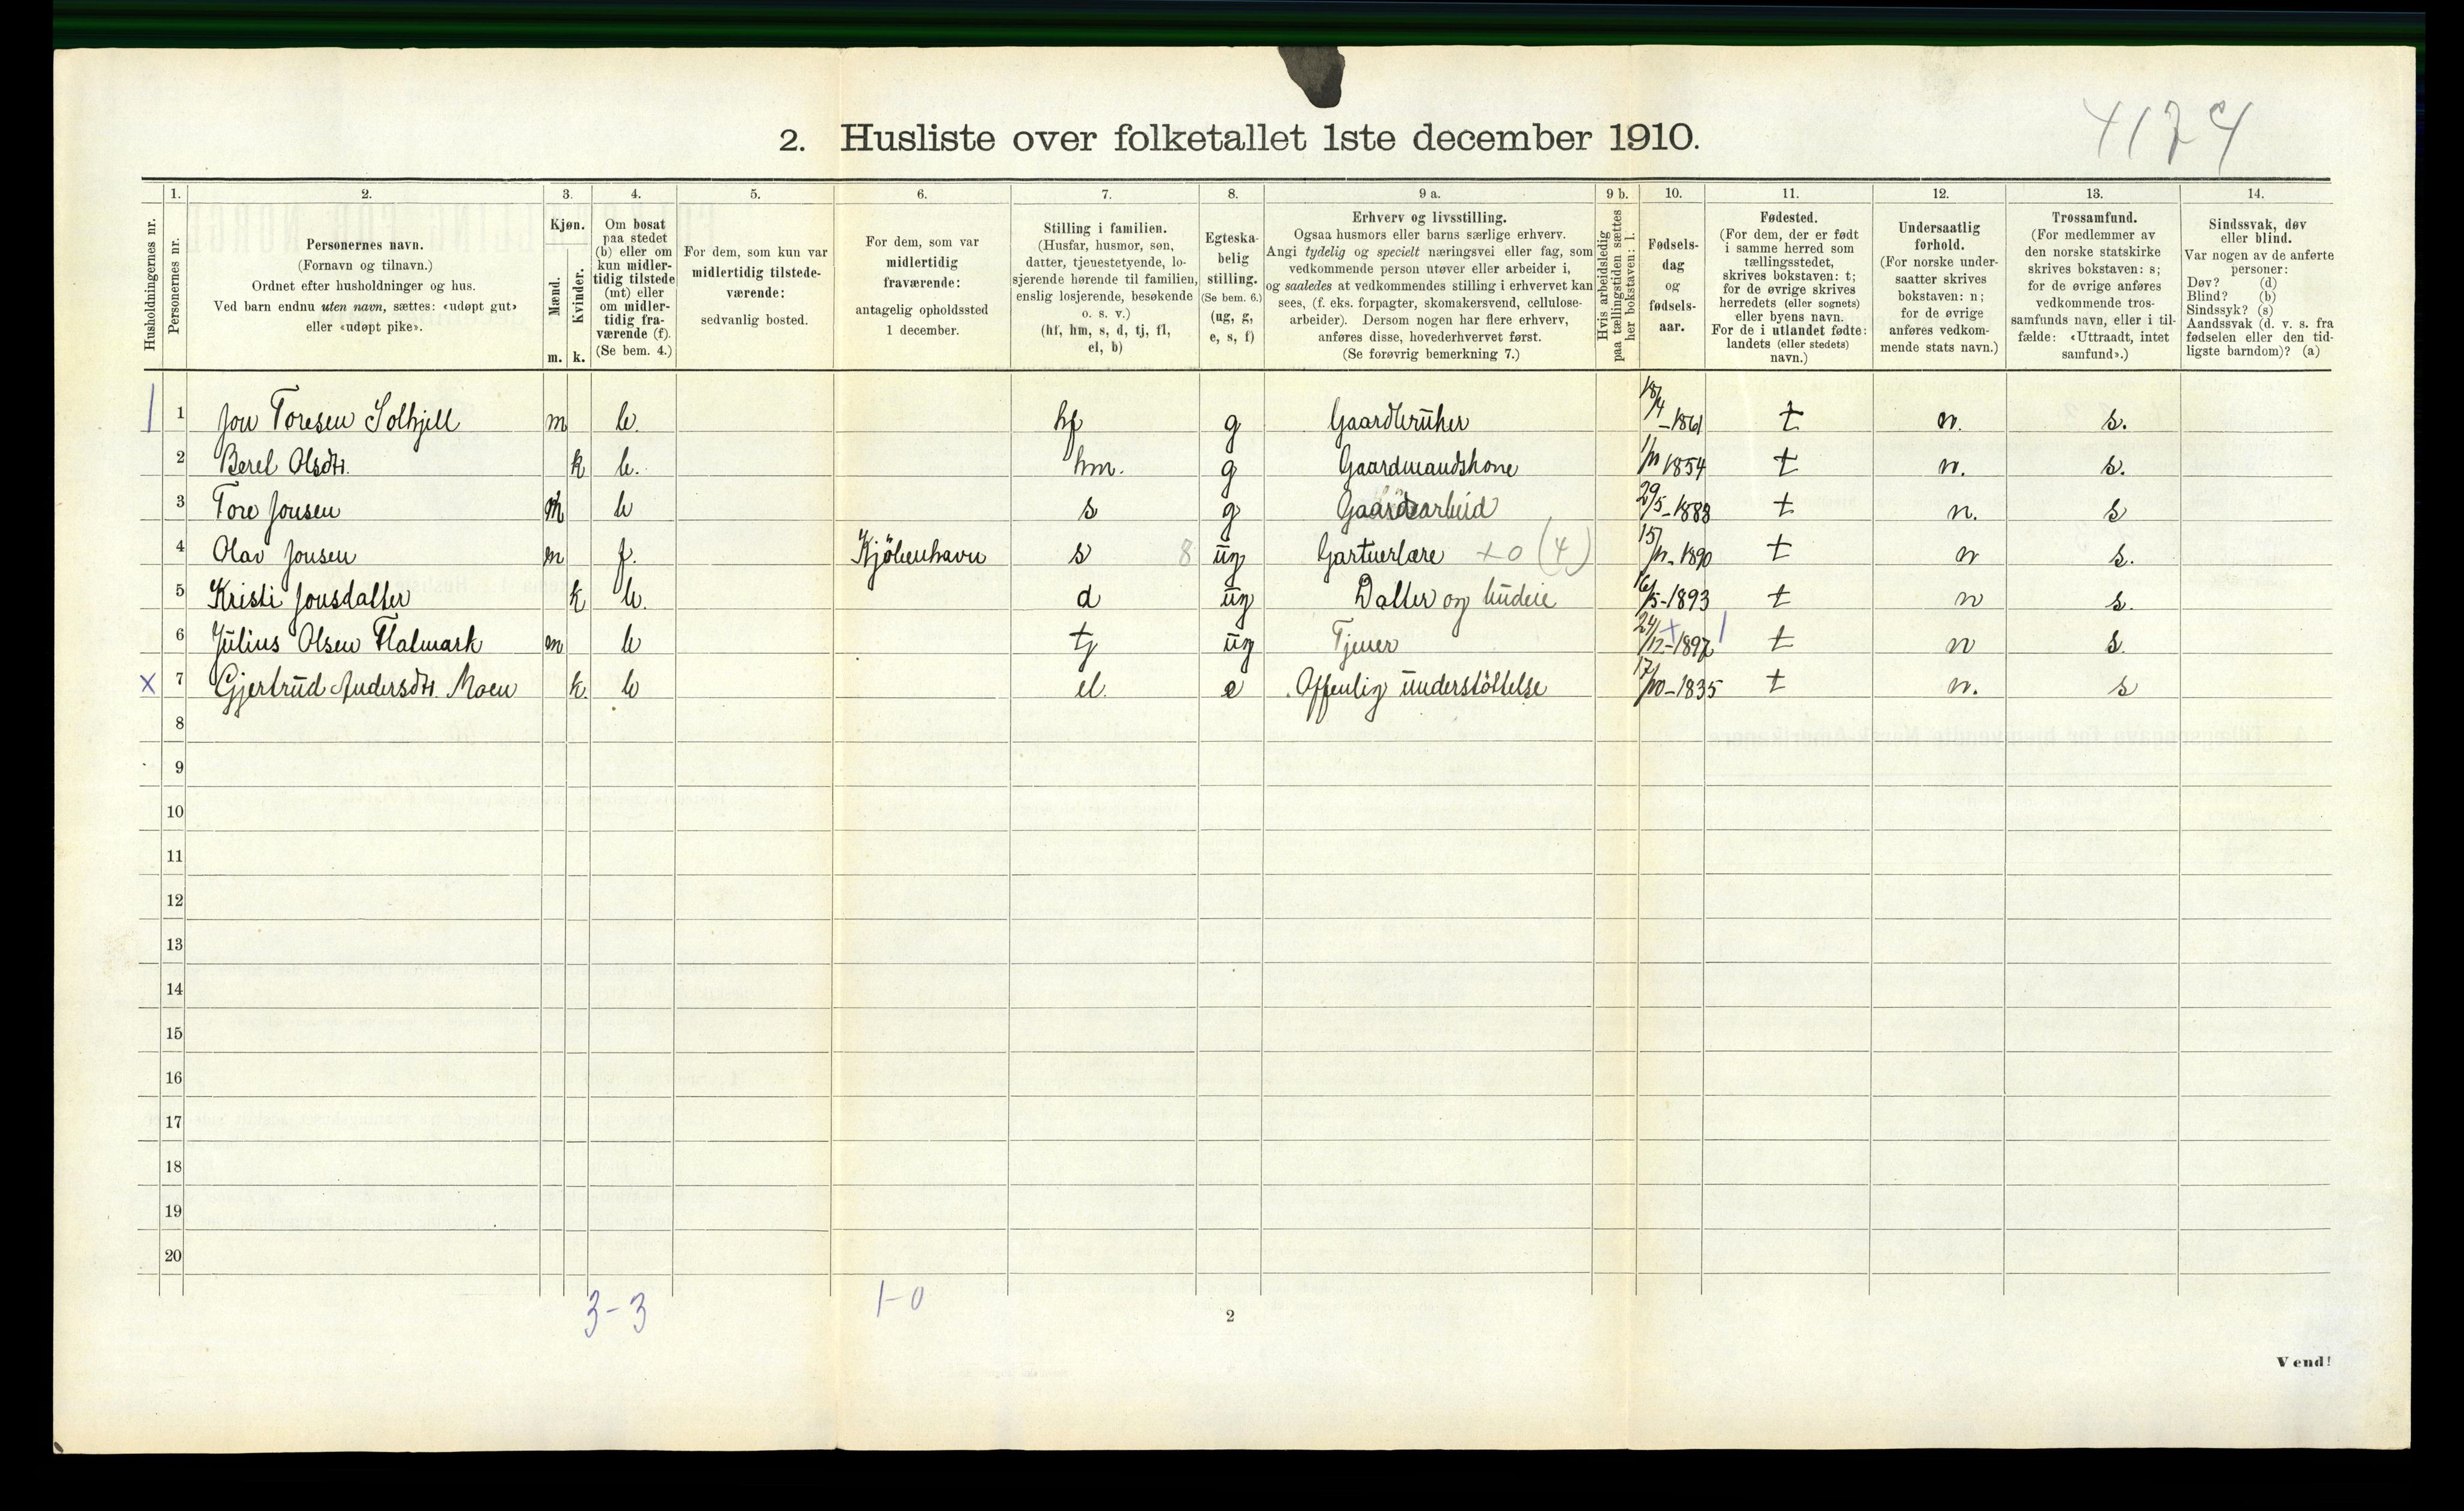 4174
2. Husliste over folketallet 1ste december 1910.
Husholdningernes nr.
1. Personernes nr.
2. Personernes navn.
(Fornavn og tilnavn.)
Ordnet efter husholdninger og hus.
Ved barn endnu uten navn, sættes: «udøpt gut»
eller «udøpt pike».
3. Kjøn.
Mænd. m.
Kvinder. k.
4. Om bosat
paa stedet
(b) eller om
kun midler-
tidig tilstede
(mt) eller
om midler-
tidig fra-
værende (f).
(Se bem. 4.)
5. For dem, som kun var
midlertidig tilstede-
værende:
sedvanlig bosted.
6. For dem, som var
midlertidig
fraværende:
antagelig opholdssted
1 december.
7. Stilling i familien.
(Husfar, husmor, søn,
datter, tjenestetyende, lo-
sjerende hørende til familien,
enslig losjerende, besøkende
o. s. v.)
(hf, hm, s, d, tj, fl,
el, b)
8. Egteska-
belig
stilling.
(Se bem. 6.)
(ug, g,
e, s, f)
9 a. Erhverv og livsstilling.
Ogsaa husmors eller barns særlige erhverv.
Angi tydelig og specielt næringsvei eller fag, som
vedkommende person utøver eller arbeider i,
og saaledes at vedkommendes stilling i erhvervet kan
sees, (f. eks. forpagter, skomakersvend, cellulose-
arbeider). Dersom nogen har flere erhverv,
anføres disse, hovederhvervet først.
(Se forøvrig bemerkning 7.)
9 b. Hvis arbeidsledig
paa tællingstiden sættes
her bokstaven: l.
10. Fødsels-
dag
og
fødsels-
aar.
11. Fødested.
(For dem, der er født
i samme herred som
tællingsstedet,
skrives bokstaven: t;
for de øvrige skrives
herredets (eller sognets)
eller byens navn.
For de i utlandet fødte:
landets (eller stedets)
navn.)
12. Undersaatlig
forhold.
(For norske under-
saatter skrives
bokstaven: n;
for de øvrige
anføres vedkom-
mende stats navn.)
13. Trossamfund.
(For medlemmer av
den norske statskirke
skrives bokstaven: s;
for de øvrige anføres
vedkommende tros-
samfunds navn, eller i til-
fælde: «Uttraadt, intet
samfund».)
14. Sindssvak, døv
eller blind.
Var nogen av de anførte
personer:
Døv? (d)
Blind? (b)
Sindssyk? (s)
Aandssvak (d. v. s. fra
fødselen eller den tid-
ligste barndom)? (a)
1 1 Jon Toresen Solhjell m b. hf g Gaardbruker 18/4-1861 t n. s.
2 Beret Olsdtr. k b. hm. g Gaardmandskone 1/11 1854 t n. s.
3 Tore Jonsen m b s g Gaardsarbeid 29/5-1888 t n. s
4 Olav Jonsen m f. Kjöbenhavn s 8 ug Gartnerlære +0 (4) 15/11-1890 t n s.
5 Kristi Jonsdatter k b. d ug Datter og budeie 16/5-1893 t n s.
6 Julius Olsen Flatmark m b tj ug Tjener 24/12-1897 t n s.
x 7 Gjertrud Andersdtr. Moen k. b el. e Offenlig understöttelse 17/10-1835 t n. s
8
9
10
11
12
13
14
15
16
17
18
19
20
3-3 1-0
2
Vend!